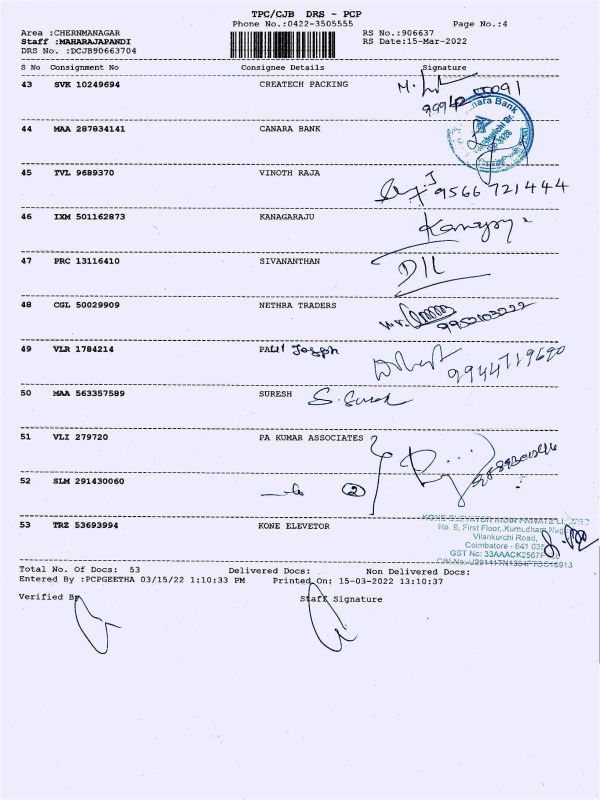 TPC/CJB DRS - PCP
Phone No.:0422-3505555 Page No.:4
Area :CHERNMANAGAR RS No.:906637
Staff :MAHARAJAPANDI RS Date:15-Mar-2022
DRS No. :DCJB90663704
S No Consignment No Consignee Details Signature
43 SVK 10249694 CREATECH PACKING
44 MAA 287834141 CANARA BANK
Canara Bank
45 TVL 9689370 VINOTH RAJA
9566721444
46 IXM 501162873 KANAGARAJU
47 PRC 13116410 SIVANANTHAN
48 CGL 50029909 NETHRA TRADERS
9952103222
49 VLR 1784214 PAUL Joseph
9944719690
50 MAA 563357589 SURESH S. Suresh
51 VLI 279720 PA KUMAR ASSOCIATES
52 SLM 291430060 2
53 TRZ 53693994 KONE ELEVETOR
No. 9, First Floor, Kumudham Nagar
Vilankurichi Road,
Coimbatore - 641 035
Total No. Of Docs: 53 Delivered Docs: Non Delivered Docs:
Entered By :PCPGEETHA 03/15/22 1:10:33 PM Printed On: 15-03-2022 13:10:37
Verified By Staff Signature